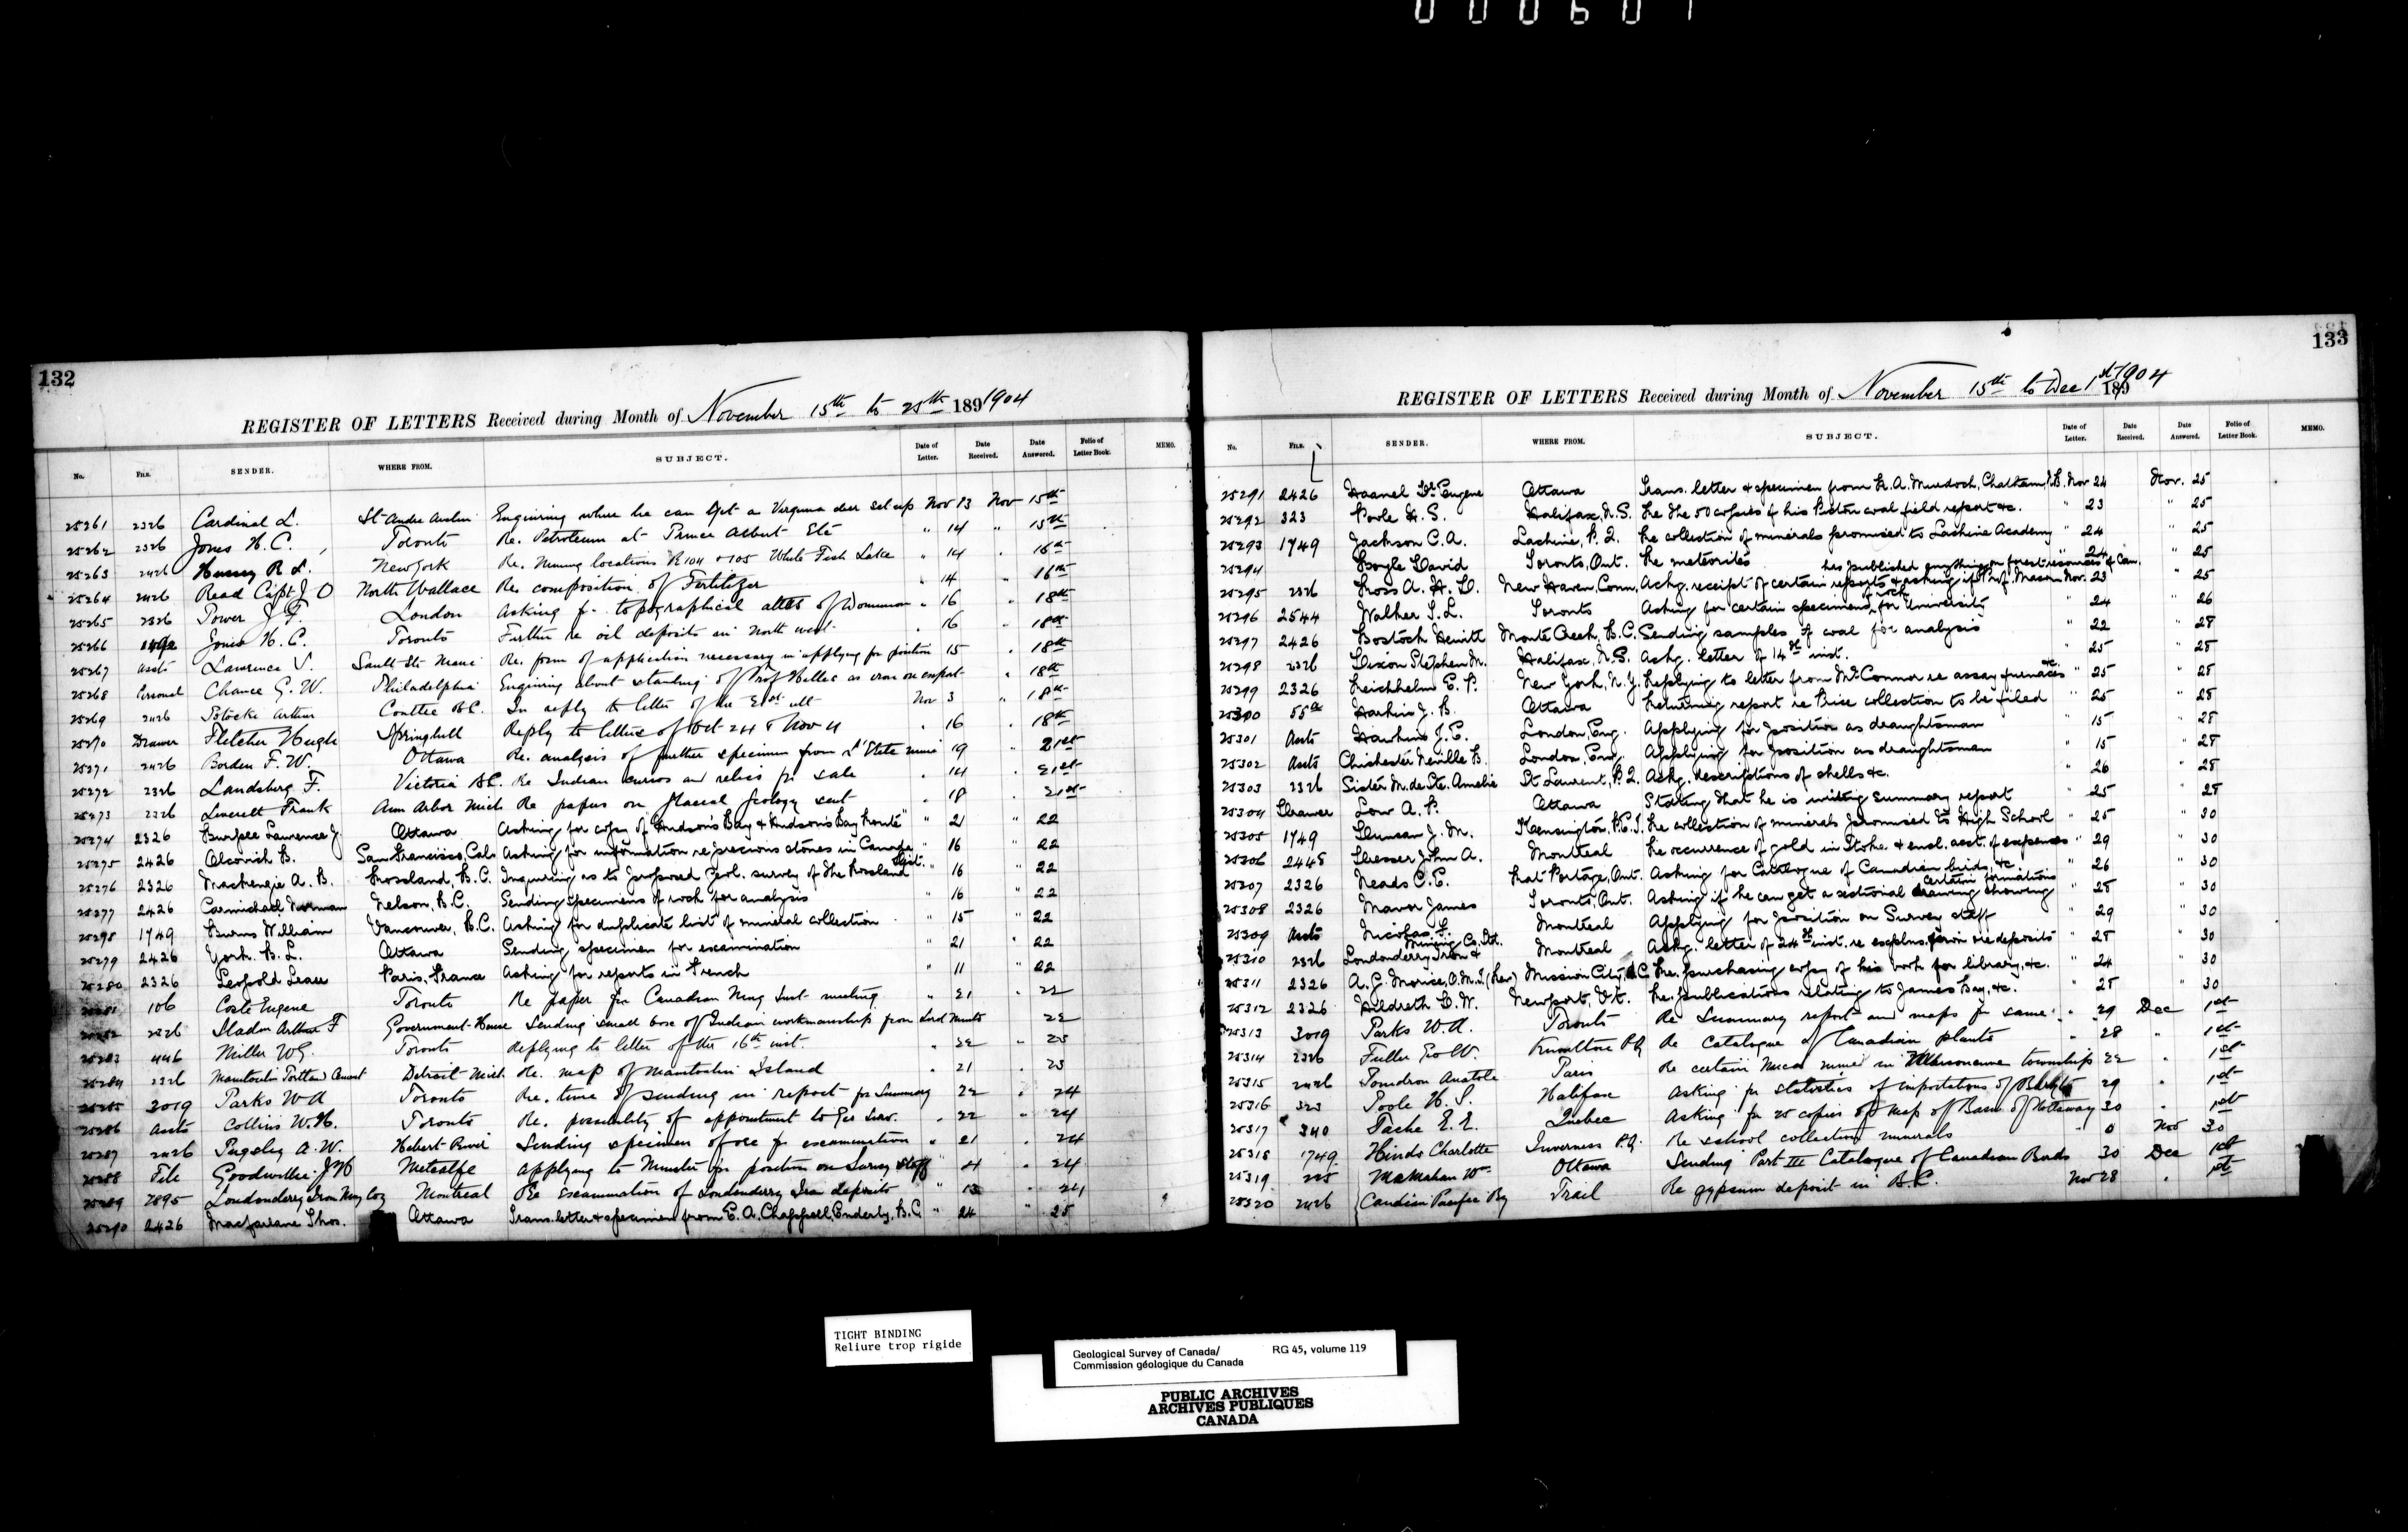 000607
132
REGISTER OF LETTERS Received during Month of November 15th to 25th 1891904
No. FILE. SENDER. WHERE FROM. SUBJECT. Date of Letter. Date Received. Date Answered. Folio of Letter Book. MEMO.
25261 2326 Cardinal L. St Andre Avelin Enquiring where he can get a Virginia deer set up Nov 13 Nov 15th
25262 2326 Jones H. C. Toronto Re. Petroleum at Prince Albert Etc " 14 " 15th
25263 2426 Hussey R L. New York Re. Mining locations R104 & 105 White Fish Lake " 14 " 16th
25264 2426 Read Capt J D North Wallace Re composition of Fertilizer " 14 " 16th
25265 2326 Power J. F. London Asking for topographical atlas of Dominion " 16 " 18th
25266 Jones H. C. Toronto Further re oil deposits in North west " 16 " 18th
25267 Assts Lawrence V. Sault Ste Marie Re. form of application necessary in applying for position 15 " 18th
25268 Personal Chance G. W. Philadelphia Enquiring about standing of Prof Hilles as iron ore expert " 18th
25269 2426 Stocke Arthur Couttee B.C. In reply to letter of the 21st ult Nov 3 " 18th
25270 Drawer Fletcher Hugh Springhill Reply to letters of Oct 24 & Nov 4 " 16 " 18th
25271 2426 Borden F. W. Ottawa Re. analysis of further specimen from L'Etete mine 19 " 21st
25272 2326 Landsberg F. Victoria B.C. Re Indian curios and relics for sale " 14 " 21st
25273 2326 Leverett Frank Ann Arbor Mich Re papers on Glacial Geology sent " 18 " 21st
25274 2326 Burpee Lawrence J. Ottawa Asking for copy of Hudson's Bay & Hudson's Bay Route" " 21 " 22
25275 2426 Alcovich B. San Francisco, Cal. Asking for information re precious stones in Canada " 16 " 22
25276 2326 Mackenzie A. B. Rossland, B.C. Inquiring as to proposed Geol. survey of the Rossland Dist. " 16 " 22
25277 2426 Carmichael Norman Nelson, B.C. Sending specimens of rock for analysis " 16 " 22
25278 1749 Burns William Vancouver, B.C. Asking for duplicate list of mineral collection " 15 " 22
25279 2426 York. B. L. Ottawa Sending specimen for examination " 21 " 22
25280 2326 Leopold Leau Paris, France Asking for reports in French " 11 " 22
25281 106 Coste Eugene Toronto Re paper for Canadian Ming Inst. meeting " 21 " 22
25282 2326 Sladen Arthur F Government House Sending small box of Indian workmanship from Lord Minto " 22
25283 446 Miller W.G. Toronto Replying to letter of the 16th inst. " 22 " 23
25284 2326 Manitoulin Portland Cement Detroit Mich. Re. map of Manitoulin Island " 21 " 23
25285 3019 Parks W A Toronto Re. time of sending in report for Summary " 22 " 24
25286 Assts Collins W. H. Toronto Re. possibility of appointment to Geo Surv. " 22 " 24
25287 2426 Pugsley A. W. Hebert River Sending specimen of ore for examination " 21 " 24
25288 File Goodwillie J H Metcalfe Applying to Minister for position on Survey staff " 4 " 24
25289 2895 Londonderry Iron Ming Coy Montreal Re Examination of Londonderry Iron deposits " 13 " 24
25290 2426 Macfarlane Thos. Ottawa Trans. letter & specimen from E. A. Chappell, Enderly, B.C. " 24 " 25
133
REGISTER OF LETTERS Received during Month of November 15th to Dec 1st 1904 189
No. FILE. SENDER. WHERE FROM. SUBJECT. Date of Letter. Date Received. Date Answered. Folio of Letter Book. MEMO.
25291 2426 Haanel Dr Eugene Ottawa Trans. letter & specimen from R. A. Murdoch, Chatham, N.B. Nov 24 Nov. 25
25292 323 Poole H. S. Halifax, N.S. Re the 50 copies of his Pictou coal field report &c. " 23 " 25
25293 1749 Jackson C. A. Lachine, P.Q. Re collection of minerals promised to Lachine Academy " 24 " 25
25294 Boyle David Toronto, Ont. Re meteorites " 24 " 25
has published anything on forest resources of Can.
25295 2326 Ross A. H. D. New Haven Conn. Ackg. receipt of certain reports & asking if Prof. Mason Nov. 23 " 25
25296 2544 Walker T. L. Toronto Asking for certain specimens of rock for University " 24 " 26
25297 2426 Bostock Hewitt Monte Creek, B.C. Sending samples of coal for analysis " 22 " 28
25298 2326 Dixon Stephen M. Halifax, N.S. Ackg. letter of 14th inst. " 25 " 28
25299 2326 Reichhelm E. P. New York, N.Y. Replying to letter from Mr Connor re assay furnaces &c. " 25 " 28
25300 55a Harkin J. B. Ottawa Returning report re Price collection to be filed " 25 " 28
25301 Assts Hawkins J. E. London, Eng. Applying for position as draughtsman " 15 " 28
25302 Assts Chichester Neville B. London, Eng. Applying for position as draughtsman " 15 " 28
25303 2326 Sister M. de Ste. Amelie St Laurent, P.Q. Ackg. descriptions of shells &c. " 26 " 28
25304 Drawer Low A. P. Ottawa Stating that he is writing summary report " 25 " 28
25305 1749 Duncan J. M. Kensington, P.E.I. Re collection of minerals promised to High School " 25 " 30
25306 2448 Dresser John A. Montreal Re occurrence of gold in Stoke & encl. acct. of expenses " 29 " 30
25307 2326 Neads C. E. Rat Portage, Ont. Asking for Catalogue of Canadian birds, &c. " 26 " 30
25308 2326 Mavor James Toronto, Ont. Asking if he can get a sectional drawing showing certain formations " 28 " 30
25309 Assts Nicolas F. Montreal Applying for position on Survey staff " 29 " 30
25310 2326 Londonderry Iron & Mining Co. Ltd. Montreal Ackg. letter of 24th inst. re explns. for iron ore deposits " 28 " 30
25311 2326 A. G. Morice, O.M.I. (Rev) Mission City, B.C. Re. purchasing copy of his work for library, &c. " 24 " 30
25312 2326 Hildreth D. W. Newport, Vt. Re. publications relating to James Bay, &c. " 28 " 30
25313 3019 Parks W. A. Toronto Re Summary report and maps for same " 29 Dec 1st
25314 2326 Fuller Geo W. Knowlton P.Q. Re Catalogue of Canadian plants " 28 " 1st
25315 2426 Pomdron Anatole Paris Re certain Mica mine in township 22 " 1st
25316 323 Poole H. S. Halifax Asking for statistics of importations of Barytes 29 " 1st
25317 340 Tache E. E. Quebec Asking for 25 copies of map of Basin of Nottaway 30 " 1st
25318 1749 Hinds Charlotte Inverness P.Q. Re school collection minerals " 0 Nov 30
25319 225 McMahon W. Ottawa Sending Part III Catalogue of Canadian Birds 30 Dec 1st
25320 2426 Candian Pacific Ry Trail Re gypsum deposit in B.C. Nov 28 " 1st
TIGHT BINDING
Reliure trop rigide
Geological Survey of Canada/ RG 45, volume 119
Commission géologique du Canada
PUBLIC ARCHIVES
ARCHIVES PUBLIQUES
CANADA